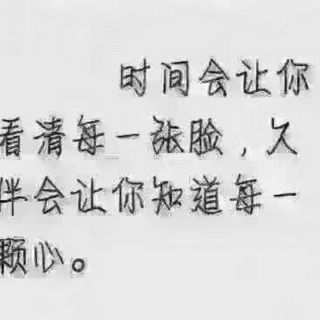 时间会让你
看清每一张脸，久
伴会让你知道每一
颗心。